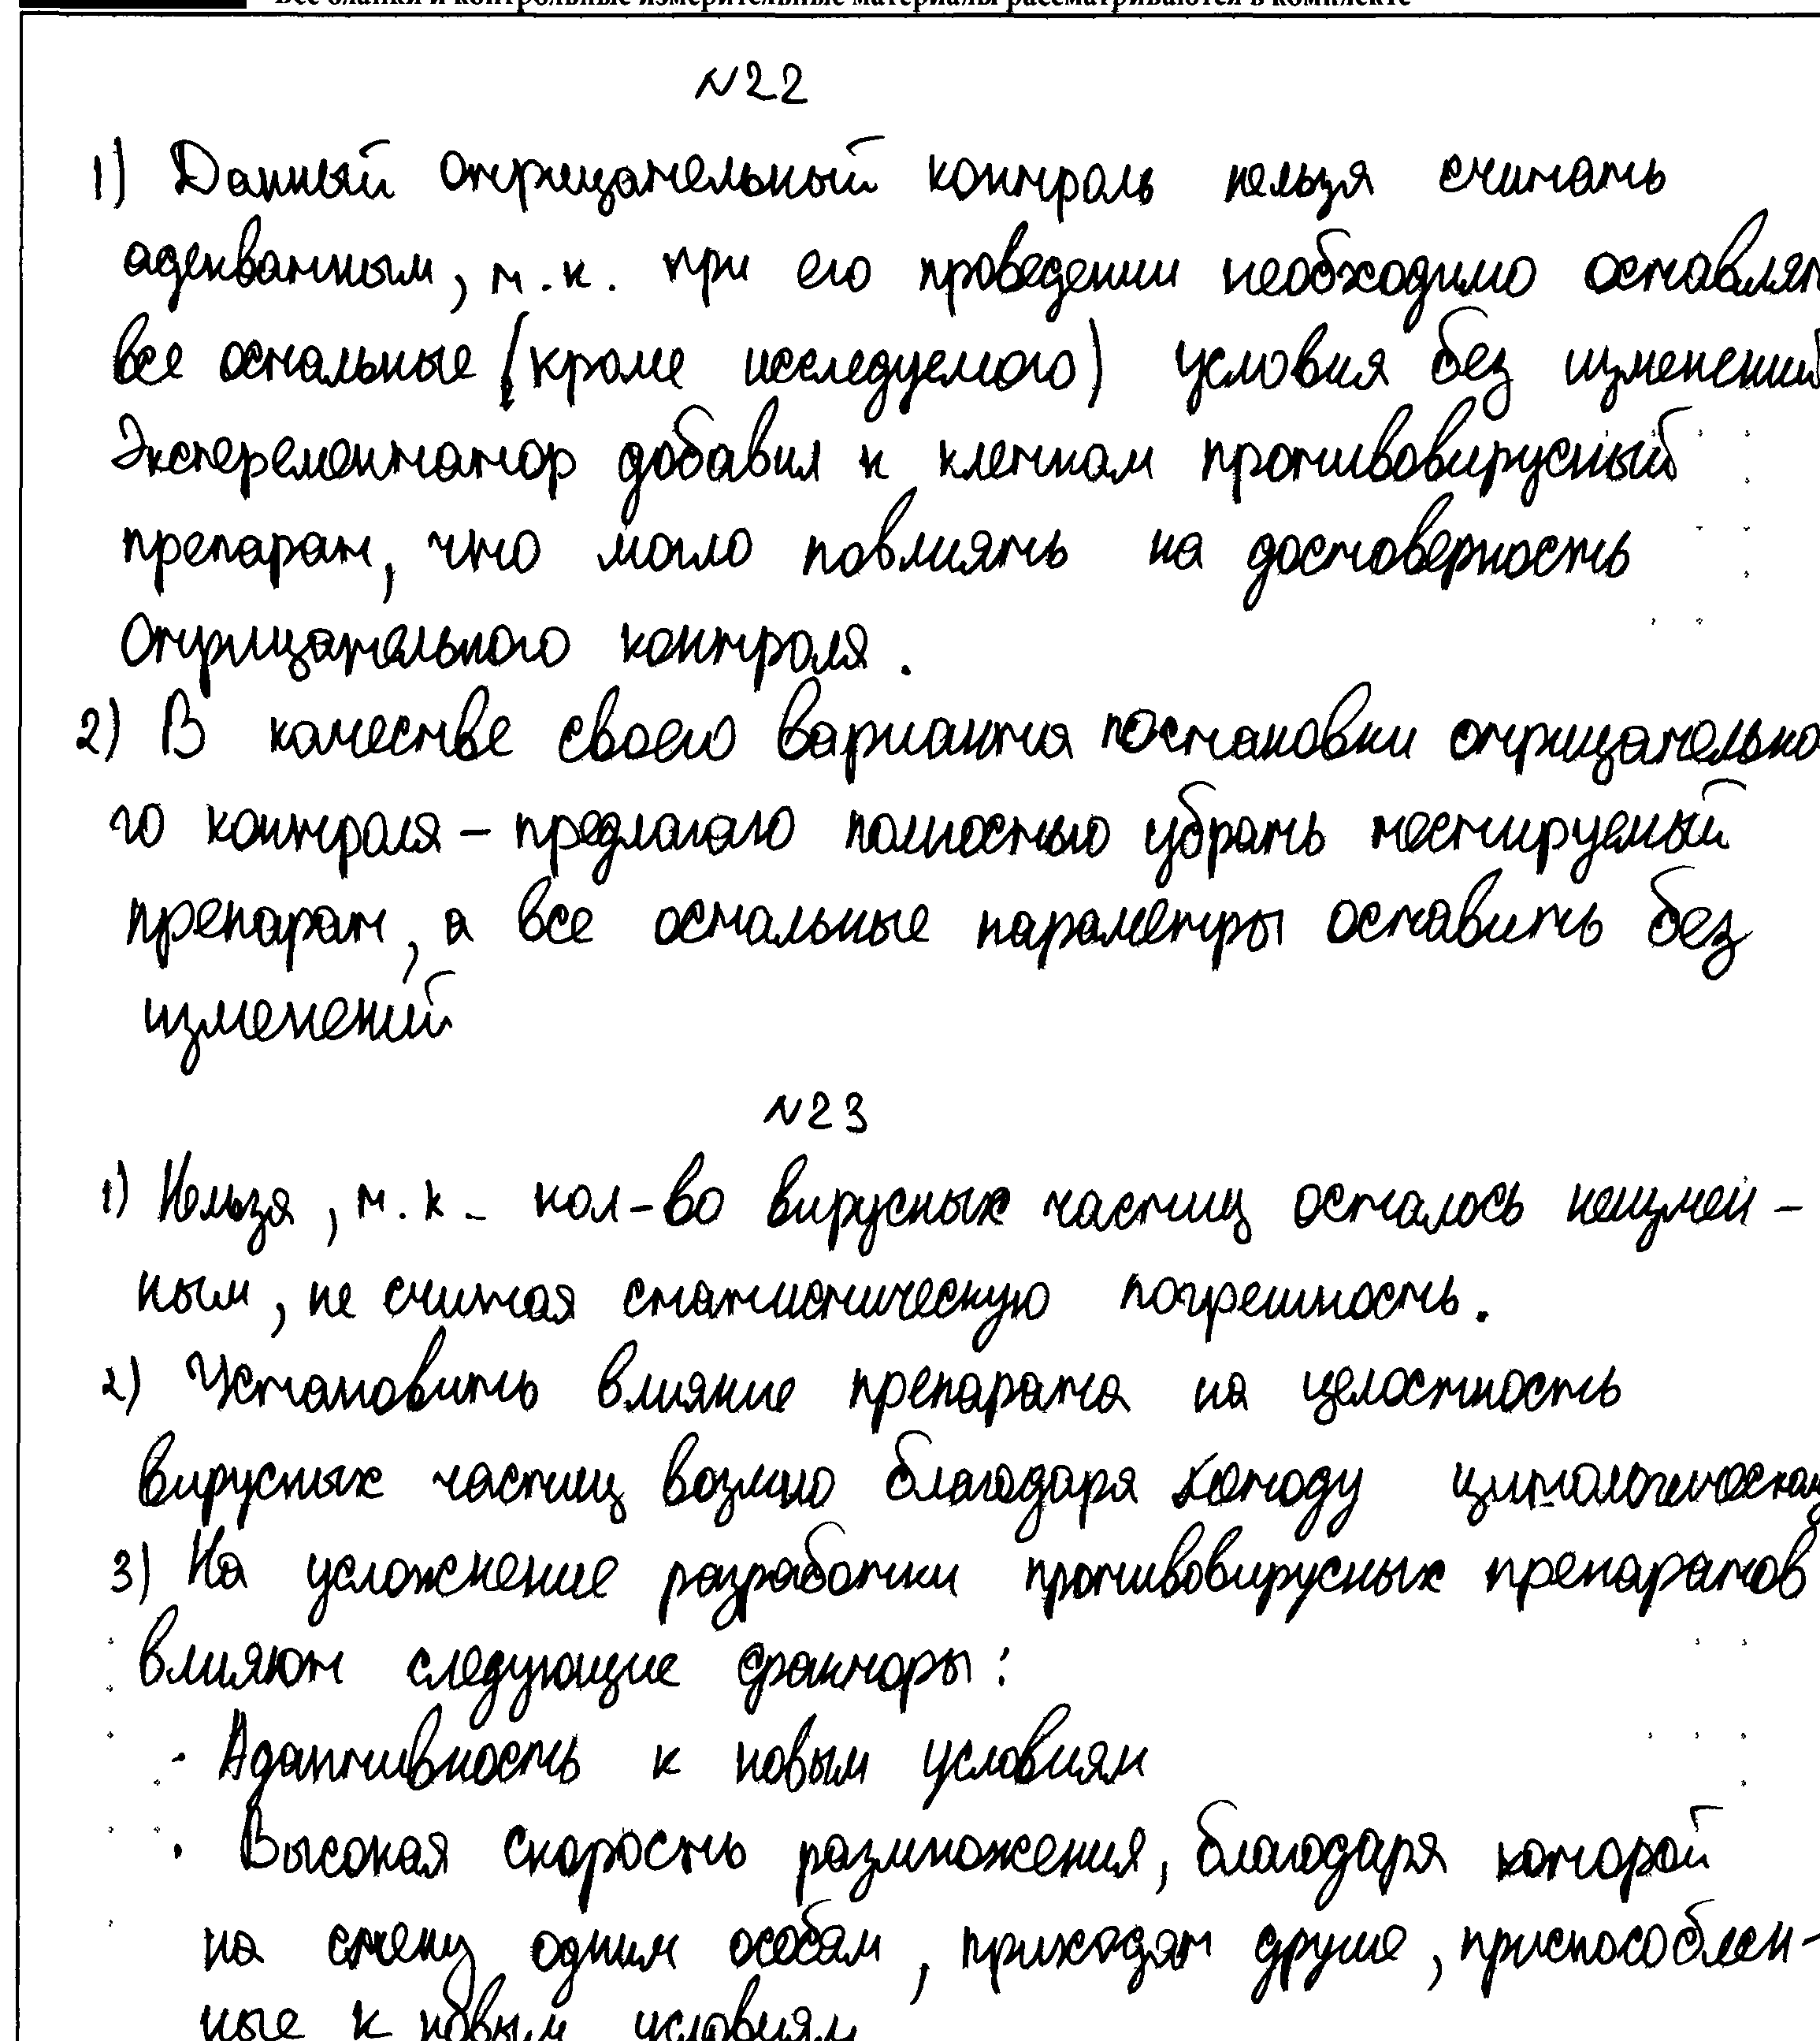 Все бланки и контрольные измерительные материалы рассматриваются в комплекте
N22
1) Данный отрицательный контроль нельзя считать
адекватным, т.к. при его проведении необходимо оставлят
все остальные (кроме исследуемого) условия без изменений
Эксперементатор добавил к клеткам противовирусный
препарат, что могло повлиять на достоверность
отрицательного контроля.
2) В качестве своего варианта постановки отрицательно
го контроля – предлагаю полностью убрать тестируемый
препарат, а все остальные параметры оставить без
изменений
N23
1) Нельзя, т.к. кол-во вирусных частиц осталось неизмен-
ным, не считая статистическую погрешность.
2) Установить влияние препарата на целостность
вирусных частиц благодаря
3) На усложнение разработки противовирусных препаратов
влияют следующие факторы:
· Адаптивность к новым условиям
· Высокая скорость размножения, благодаря которой
на смену одним особям, приходят другие, приспособлен-
ные к новым условиям